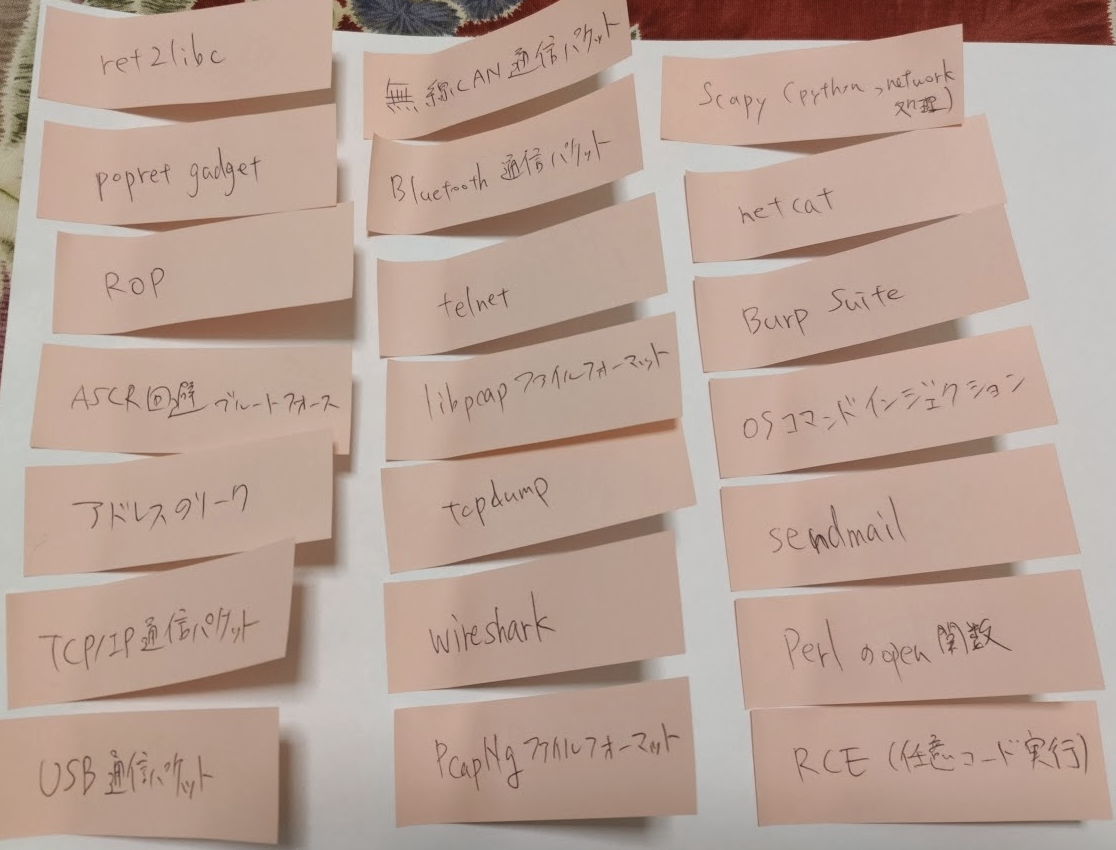 ret2libc
popret gadget
ROP
ASCR回避 ブルートフォース
アドレスのリーク
TCP/IP通信パケット
USB通信パケット
無線CAN通信パケット
Bluetooth 通信パケット
telnet
libpcap ファイルフォーマット
tcpdump
wireshark
PcapNg ファイルフォーマット
Scapy (python, network
処理)
netcat
Burp Suite
OSコマンドインジェクション
sendmail
Perl のopen関数
RCE (任意コード実行)